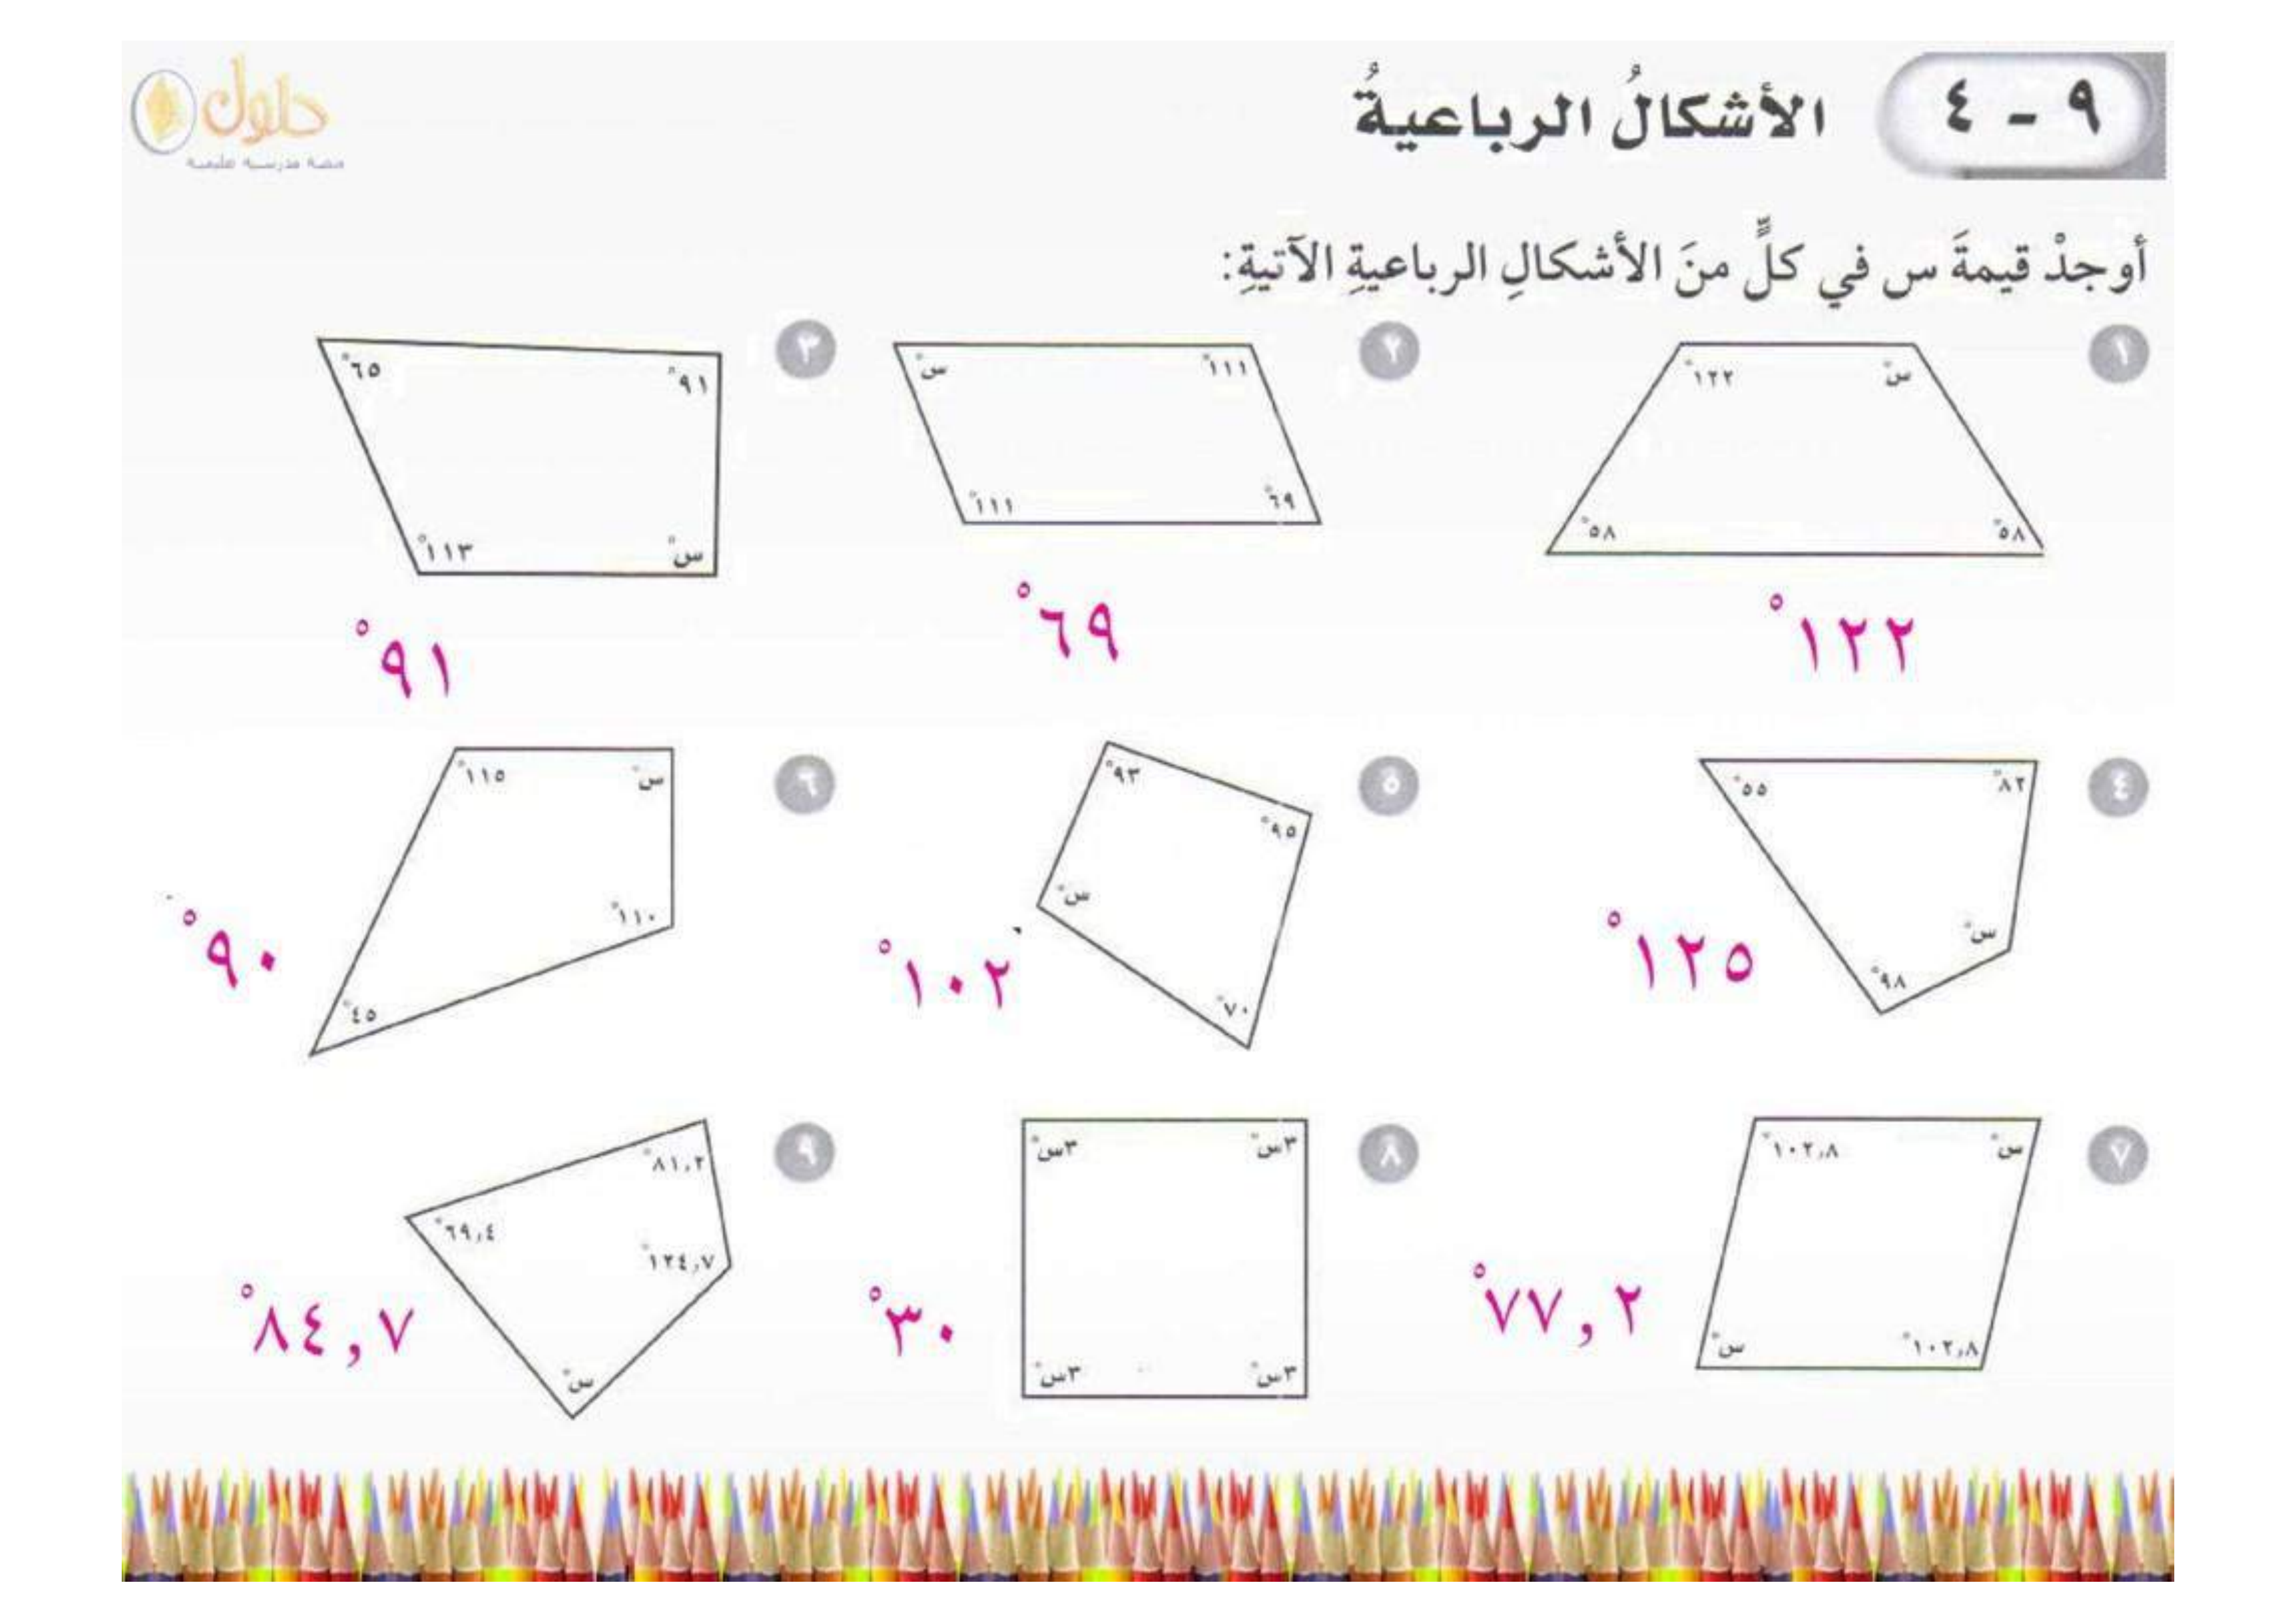 ٩ - ٤ الأشكالُ الرباعيةُ
حلول
منصة مدرسية تعليمية
أوجدْ قيمةَ س في كلٍّ منَ الأشكالِ الرباعيةِ الآتيةِ:
١
°١٢٢ س°
°٥٨ °٥٨
°١٢٢
٢
س° °١١١
°١١١ °٦٩
°٦٩
٣
°٦٥ °٩١
°١١٣ س°
°٩١
٤
°٥٥ °٨٢
س°
°٩٨
°١٢٥
٥
°٩٣
°٩٥
س°
°٧٠
°١٠٢
٦
°١١٥ س°
°١١٠
°٤٥
°٩٠
٧
°١٠٢,٨ س°
س° °١٠٢,٨
°٧٧,٢
٨
٣س° ٣س°
٣س° ٣س°
°٣٠
٩
°٨١,٢
°٦٩,٤
°١٢٤,٧
س°
°٨٤,٧